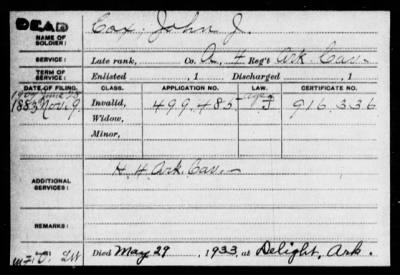 DEAD
NAME OF SOLDIER: Cox, John J.
SERVICE: Late rank, Co. A, 4 Reg't Ark. Cav.
TERM OF SERVICE: Enlisted , 1 Discharged , 1
DATE OF FILING. CLASS. APPLICATION NO. LAW. CERTIFICATE NO.
1883 Nov. 9. Invalid, 499.485 J 916.336
Widow,
Minor,
ADDITIONAL SERVICES: H. 4 Ark. Cav.
REMARKS:
Died May 29, 1933 at Delight, Ark.